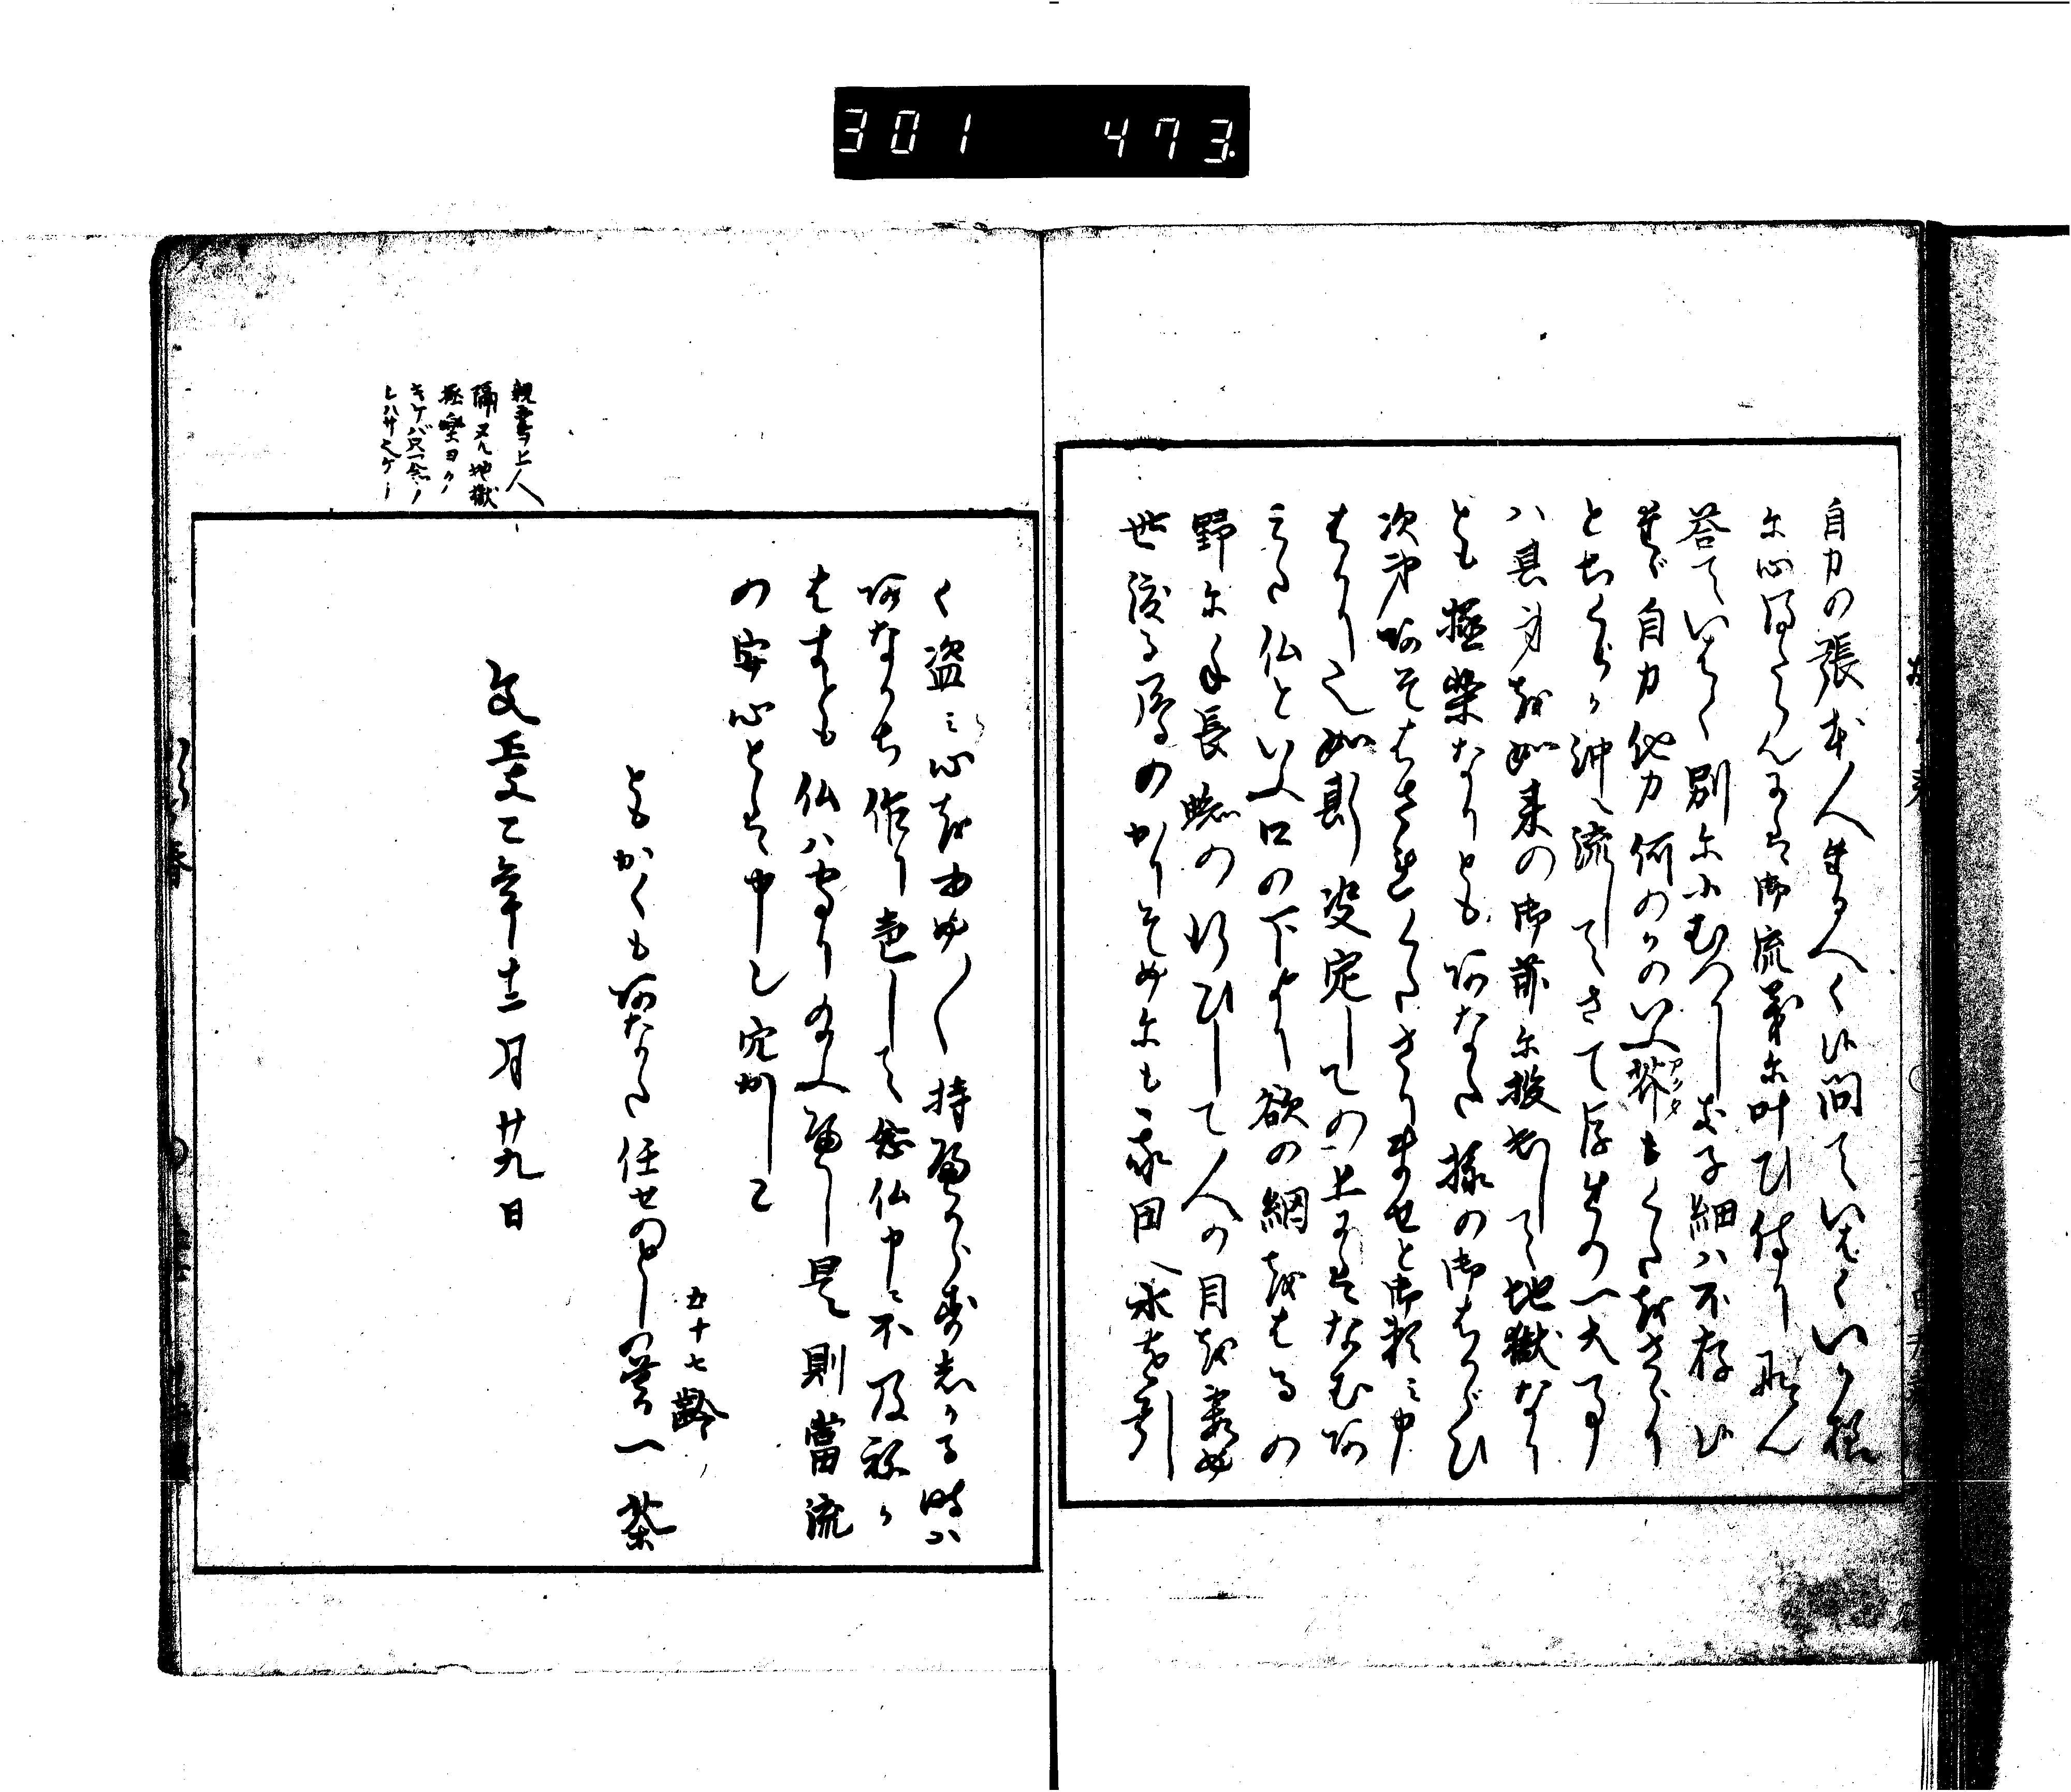 301 473
自力の張本人たるべく候問ていはくいか様
に心得たらんには御流儀に叶ひ侍りなん
答ていはく別に小むつかしき子細ハ不存候
たゞ自力他力何のかのいふ芥もくたをさらり
とちくらか沖へ流してさて後生の一大事
ハ其身を如来の御前に投出して地獄なり
とも極楽なりともあなた様の御はからひ
次第あそはされくたさりませと御頼ミ申
はかり也如斯決定しての上にはなむあ
みた仏といふ口の下より欲の網をはるの
野に手長蜘の行ひして人の目を霞め
世渡る雁のかりそめにも我田へ水を引
く盗ミ心をゆめ〱持へからす志かる時ハ
あなかち作り声して念仏申ニ不及ねか
はすとも仏ハ守り給ふへし是則當流
の安心とは申也穴かしこ
ともかくもあなた任せのとしの暮
五十七齢
一茶
文政二年十二月廿九日